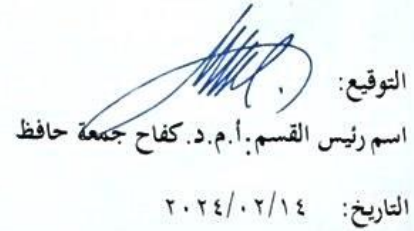 التوقيع:
اسم رئيس القسم: أ.م.د. كفاح جمعة حافظ
التاريخ: ٢٠٢٤/٠٢/١٤